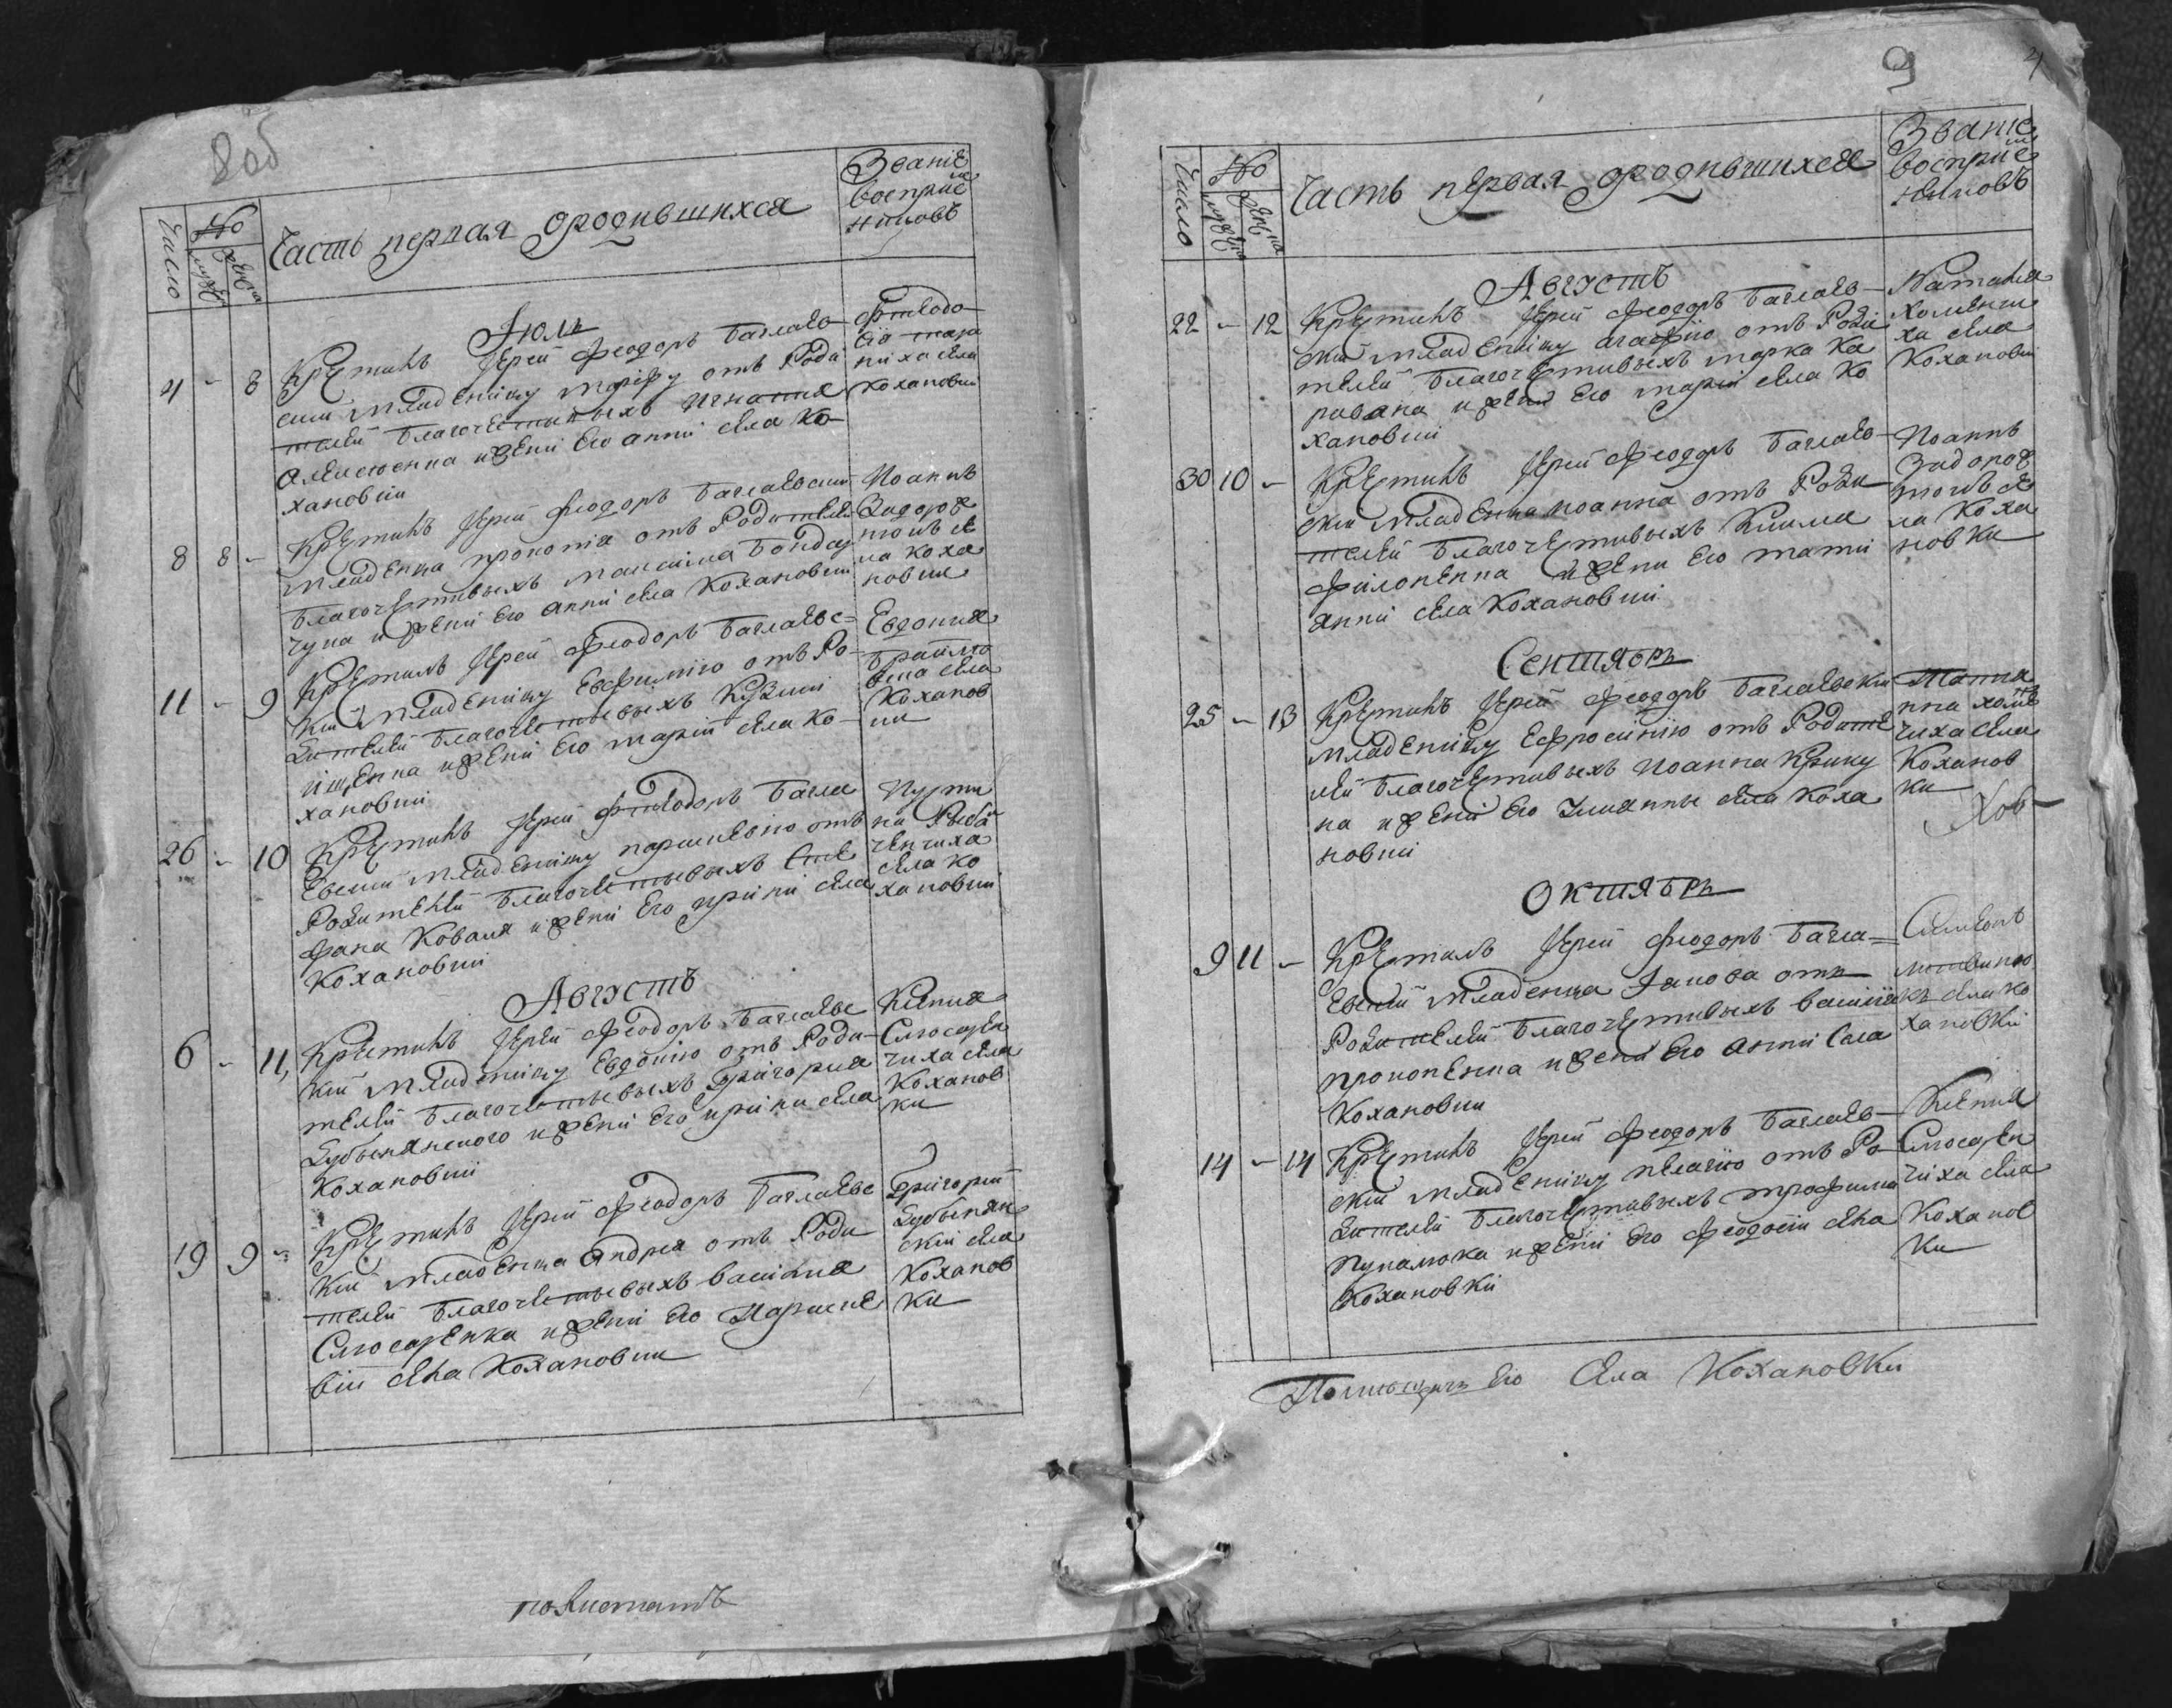 8 об
Число
№
Часть первая ородившихся
Званiе
восприе
мниковъ
Июль
4 - 8 Крестилъ Иерей Феодоръ Баглаев
ский младеницу Марфу отъ Роди
телей благочестивыхъ Игнатия
Алексеенка и жени его Анни села Ко
хановки
Феодо
сiя
ниха села
Кохановки
8 8 - Крестилъ Иерей Феодоръ Баглаевский
младенца Прокопия отъ Родителей
благочестивыхъ Максима Бондар
чука и жени его Анни села Кохановки
Иоаннъ
Задорож
нюкъ се
ла Коха
новки
11 - 9 Крестилъ Иерей Феодоръ Баглаевс
кий младеницу Евфимию отъ Ро
дителей благочестивыхъ Кузми
Ищенка и жени его Марiи села Ко
хановки
Евдокия
села
Коханов
ки
26 - 10 Крестилъ Иерей Феодоръ Багла
евский младеницу Параскевию отъ
Родителей благочестивыхъ Сте
фана Коваля и жени его Ирини села
Кохановки
Иусти
на Риба
ченчиха
села Ко
хановки
Августъ
6 - 11 Крестилъ Иерей Феодоръ Баглаевс
кий младеницу Евдокию отъ Роди
телей благочестивыхъ Григория
Дубинянского и жени его Ирини села
Кохановки
Ксения
Слюсарен
чиха села
Коханов
ки
19 9 - Крестилъ Иерей Феодоръ Баглаевс
кий младенца Андрея отъ Роди
телей благочестивыхъ Василия
Слюсаренка и жени его Параске
вiи села Кохановки
Григорий
Дубинян
ский села
Коханов
ки
9
Число
№
Часть первая ородившихся
Званiе
восприе
мниковъ
Августъ
22 - 12 Крестилъ Иерей Феодоръ Баглаев
ский младеницу Агафiю отъ Роди
телей благочестивыхъ Марка Ка
равана и жени его Марiи села Ко
хановки
Наталия
села
Кохановки
30 10 - Крестилъ Иерей Феодоръ Баглаев
ский младенца Иоанна отъ Роди
телей благочестивыхъ
Филоненка и жени его
села Кохановки
Иоаннъ
Задорож
нюкъ се
ла Коха
новки
Сентябрь
25 - 13 Крестилъ Иерей Феодоръ Баглаевский
младеницу Ефросинию отъ Родите
лей благочестивыхъ Иоанна
на и жени его Улиянны села Коха
новки
чиха села
Коханов
ки
Октябрь
9 11 - Крестилъ Иерей Феодоръ Багла
евский младенца Iакова отъ
Родителей благочестивыхъ Василия
Прокопенка и жени его Анни села
Кохановки
Симеонъ
Литвиню
къ села Ко
хановки
14 - 14 Крестилъ Иерей Феодоръ Баглаев
ский младеницу Пелагию отъ Ро
дителей благочестивыхъ Трофима
и жени его Феодосiи села
Кохановки
Ксения
Слюсарен
чиха села
Коханов
ки
его села Кохановки